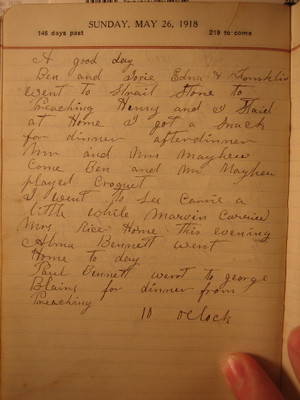 SUNDAY, MAY 26, 1918
146 days past
219 to come
A good day
Ben and Edna &
went to Stone to
Preaching Henry and I Staid
at Home I got a Snack
for dinner after dinner
Mr and Mrs Mayhew
Come Ben and Mr Mayhew
played Croquet
I went to See Carrie a
little while Marvin Carried
Mrs Rice Home this evening
Alma Bennett went
Home to day
Paul Bennett went to george
Blains for dinner from
Preaching
10 oclock